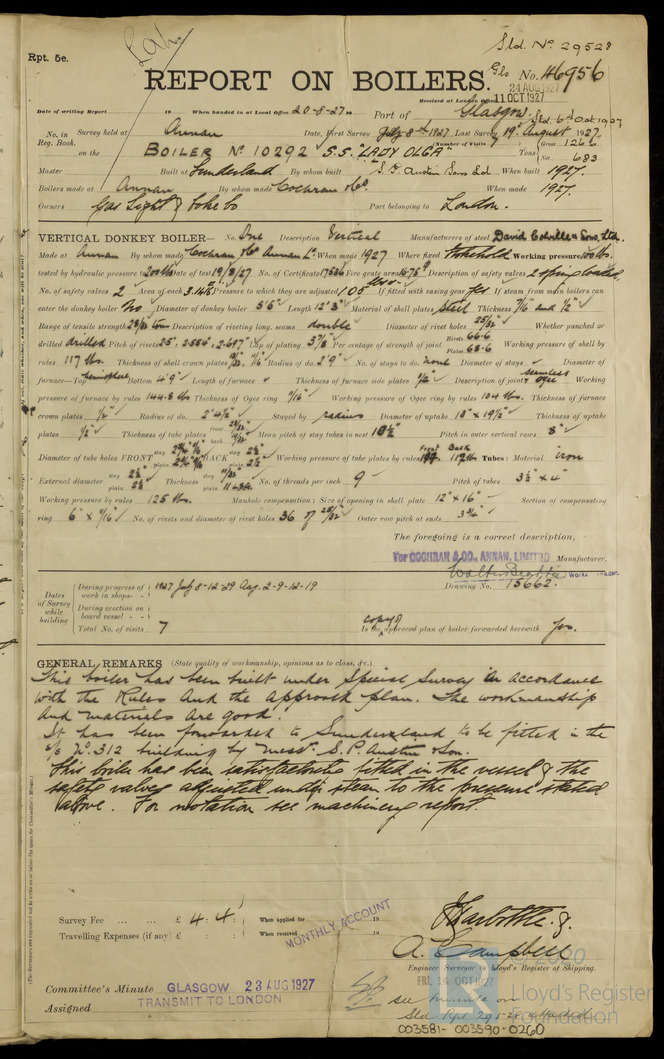 Sld. No 29528
Rpt. 5e.
Gls No. 46956
REPORT ON BOILERS.
24 AUG 1927
Received at London Office 11 OCT 1927
Date of writing Report 19 When handed in at Local Office 20-8-27 Port of Glasgow. Sld. 6th Oct 1927
No. in Reg. Book. Survey held at Annan Date, First Survey July 8th 1927 Last Survey 19th August 1927.
Number of Visits 7
on the BOILER No 10292 S.S. "LADY OLGA" Tons Gross 1266 Net 683
Master Built at Sunderland By whom built S. P. Austin Sons Ld When built 1927.
Boilers made at Annan By whom made Cochran & Co When made 1927.
Owners Gas Light & Coke Co Port belonging to London.
VERTICAL DONKEY BOILER— No. One Description Vertical Manufacturers of steel David Colville & Sons, Ltd.
Made at Annan By whom made Cochran & Co Annan Ld When made 1927 Where fixed Stokehold Working pressure 100 lbs.
tested by hydraulic pressure to 200 lbs Date of test 19/8/27 No. of Certificate 17536 Fire grate area 15.75 Description of safety valves 2 spring loaded
No. of safety valves 2 Area of each 3.14 Pressure to which they are adjusted 105 lbs If fitted with easing gear Yes If steam from main boilers can
enter the donkey boiler No Diameter of donkey boiler 5'6" Length 12'3" Material of shell plates Steel Thickness 7/16 and 1/2"
Range of tensile strength 28/32 tons Description of riveting long. seams double Diameter of rivet holes 25/32" Whether punched or
drilled drilled Pitch of rivets 2.556, 2.697 Lap of plating 3 7/8 Per centage of strength of joint Rivets 66.6 Plates 68.6 Working pressure of shell by
rules 117 lbs. Thickness of shell crown plates 9/16 Radius of do. 2'9" No. of stays to do. none Diameter of stays Diameter of
furnace—Top hemispherl Bottom 4'9" Length of furnace Thickness of furnace side plates 1/2" Description of joint seamless & ogee Working
pressure of furnace by rules 144.8 lbs Thickness of Ogee ring 7/16" Working pressure of Ogee ring by rules 104 lbs. Thickness of furnace
crown plates 1/2" Radius of do. 2'4 1/2" Stayed by radius Diameter of uptake 13" x 19 1/2" Thickness of uptake
plates 1/2" Thickness of tube plates front 23/32 back 19/32 Mean pitch of stay tubes in nest 10 1/2" Pitch in outer vertical rows 8"
Diameter of tube holes FRONT stay 2 3/4 plain BACK stay 2 1/2 plain 2 1/2 Working pressure of tube plates by rules Front Back 112 lbs. Tubes: Material iron
External diameter stay 2 1/2" plain 2 1/2 Thickness stay plain No. of threads per inch 9 Pitch of tubes 3 1/2" x 4"
Working pressure by rules 125 lbs. Manhole compensation: Size of opening in shell plate 12" x 16" Section of compensating
ring 6" x 9/16" No. of rivets and diameter of rivet holes 36 of 25/32" Outer row pitch at ends 3 3/4"
The foregoing is a correct description,
For COCHRAN & CO., ANNAN, LIMITED Manufacturer.
Walter Beattie Works Manager
Drawing No. 15662.
Dates of Survey while building
During progress of work in shops - - 1927 July 8-12-29 Aug. 2-9-12-19
During erection on board vessel - - -
Total No. of visits 7
Is the copy of approved plan of boiler forwarded herewith Yes.
GENERAL REMARKS (State quality of workmanship, opinions as to class, &c.)
This boiler has been built under Special Survey in accordance
with the Rules and the approved plan. The workmanship
and materials are good.
It has been forwarded to Sunderland to be fitted in the
s/s No. 312 building by Messrs. S. P. Austin & Son.
This boiler has been satisfactorily fitted in the vessel & the
safety valves adjusted under steam to the pressure stated
above. For notation see machinery report.
Survey Fee ... ... £ 4 : 4 : When applied for 19
Travelling Expenses (if any) £ : : When received 19
MONTHLY ACCOUNT
A. Campbell
Engineer Surveyor to Lloyd's Register of Shipping.
Committee's Minute GLASGOW 23 AUG 1927 FRI. 14 OCT 1927
Assigned TRANSMIT TO LONDON
see minute on
Sld Rpt 29528 attached
Lloyd's Register
Foundation
003581-003590-0260